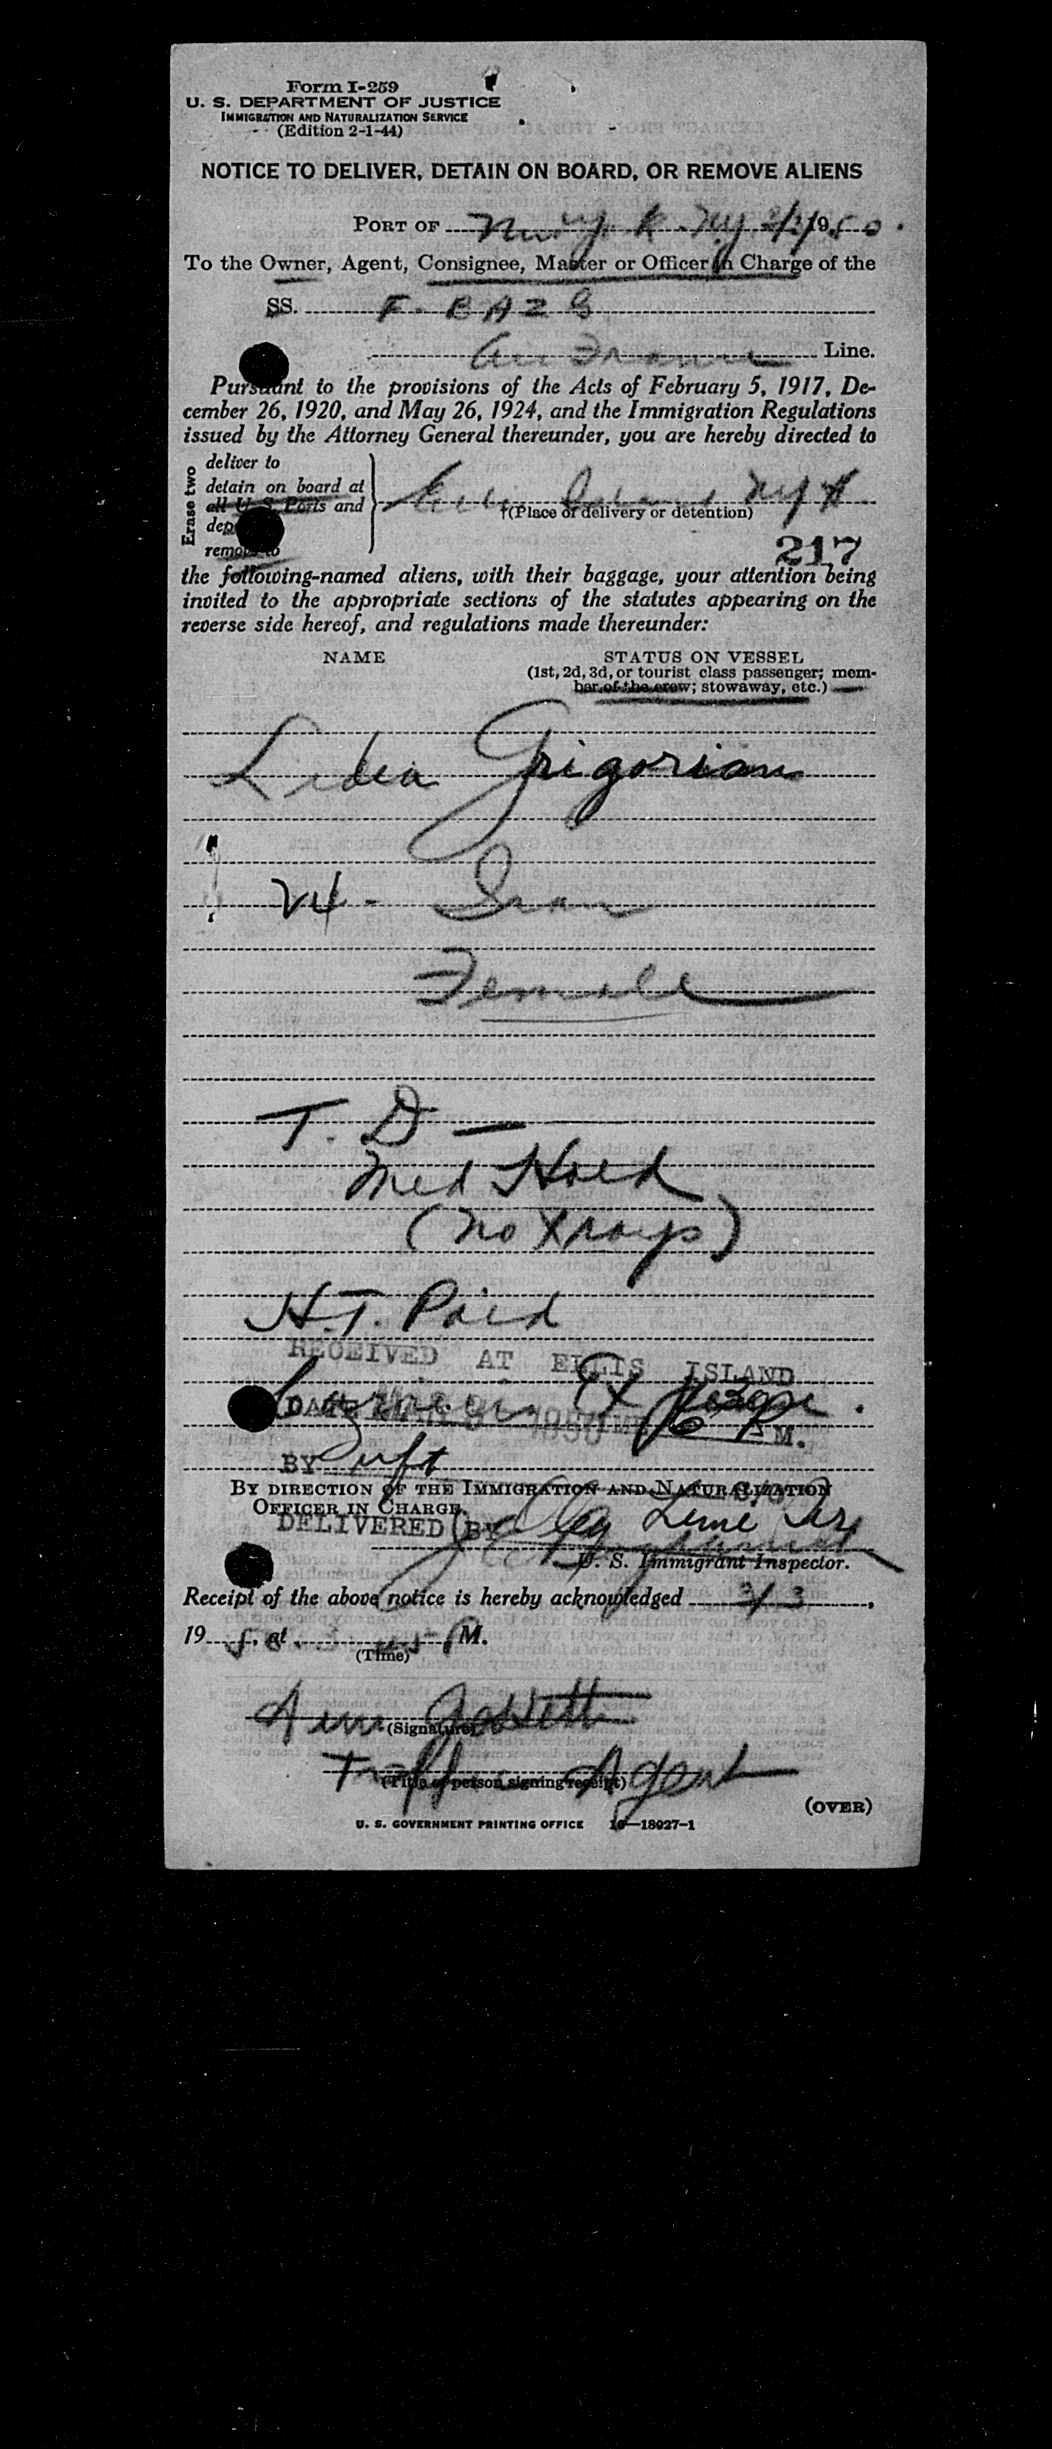 Form I-259
U. S. DEPARTMENT OF JUSTICE
IMMIGRATION AND NATURALIZATION SERVICE
(Edition 2-1-44)
NOTICE TO DELIVER, DETAIN ON BOARD, OR REMOVE ALIENS
PORT OF NY 1950
To the Owner, Agent, Consignee, Master or Officer in Charge of the
SS. F. BAZ
Air France Line.
Pursuant to the provisions of the Acts of February 5, 1917, De-
cember 26, 1920, and May 26, 1924, and the Immigration Regulations
issued by the Attorney General thereunder, you are hereby directed to
Erase two
deliver to
detain on board at
all U. S. Ports and
remove to
Ellis Island NY H
†(Place of delivery or detention)
217
the following-named aliens, with their baggage, your attention being
invited to the appropriate sections of the statutes appearing on the
reverse side hereof, and regulations made thereunder:
NAME STATUS ON VESSEL
(1st, 2d, 3d, or tourist class passenger; mem-
ber of the crew; stowaway, etc.)
Lidia Grigorian
24 - Iran
Female
T. D —
Med Hold
(No Xrays)
H.T. Paid
RECEIVED AT ELLIS ISLAND
DATE 1950 M.
BY
BY DIRECTION OF THE IMMIGRATION AND NATURALIZATION
OFFICER IN CHARGE
DELIVERED BY
U. S. Immigrant Inspector.
Receipt of the above notice is hereby acknowledged 3/3,
19 50, at M.
(Time)
(Signature)
Traffic Agent
(Title of person signing receipt)
(OVER)
U. S. GOVERNMENT PRINTING OFFICE 16—18027-1